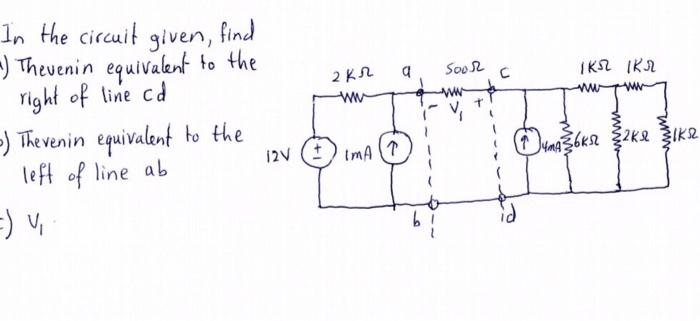 In the circuit given, find
) Thevenin equivalent to the
right of line cd
) Thevenin equivalent to the
left of line ab
) V₁
2KΩ a 500Ω c 1KΩ 1KΩ
- V₁ +
12V + - 1mA ↑ ↑ 4mA 6KΩ 2KΩ 1KΩ
b d